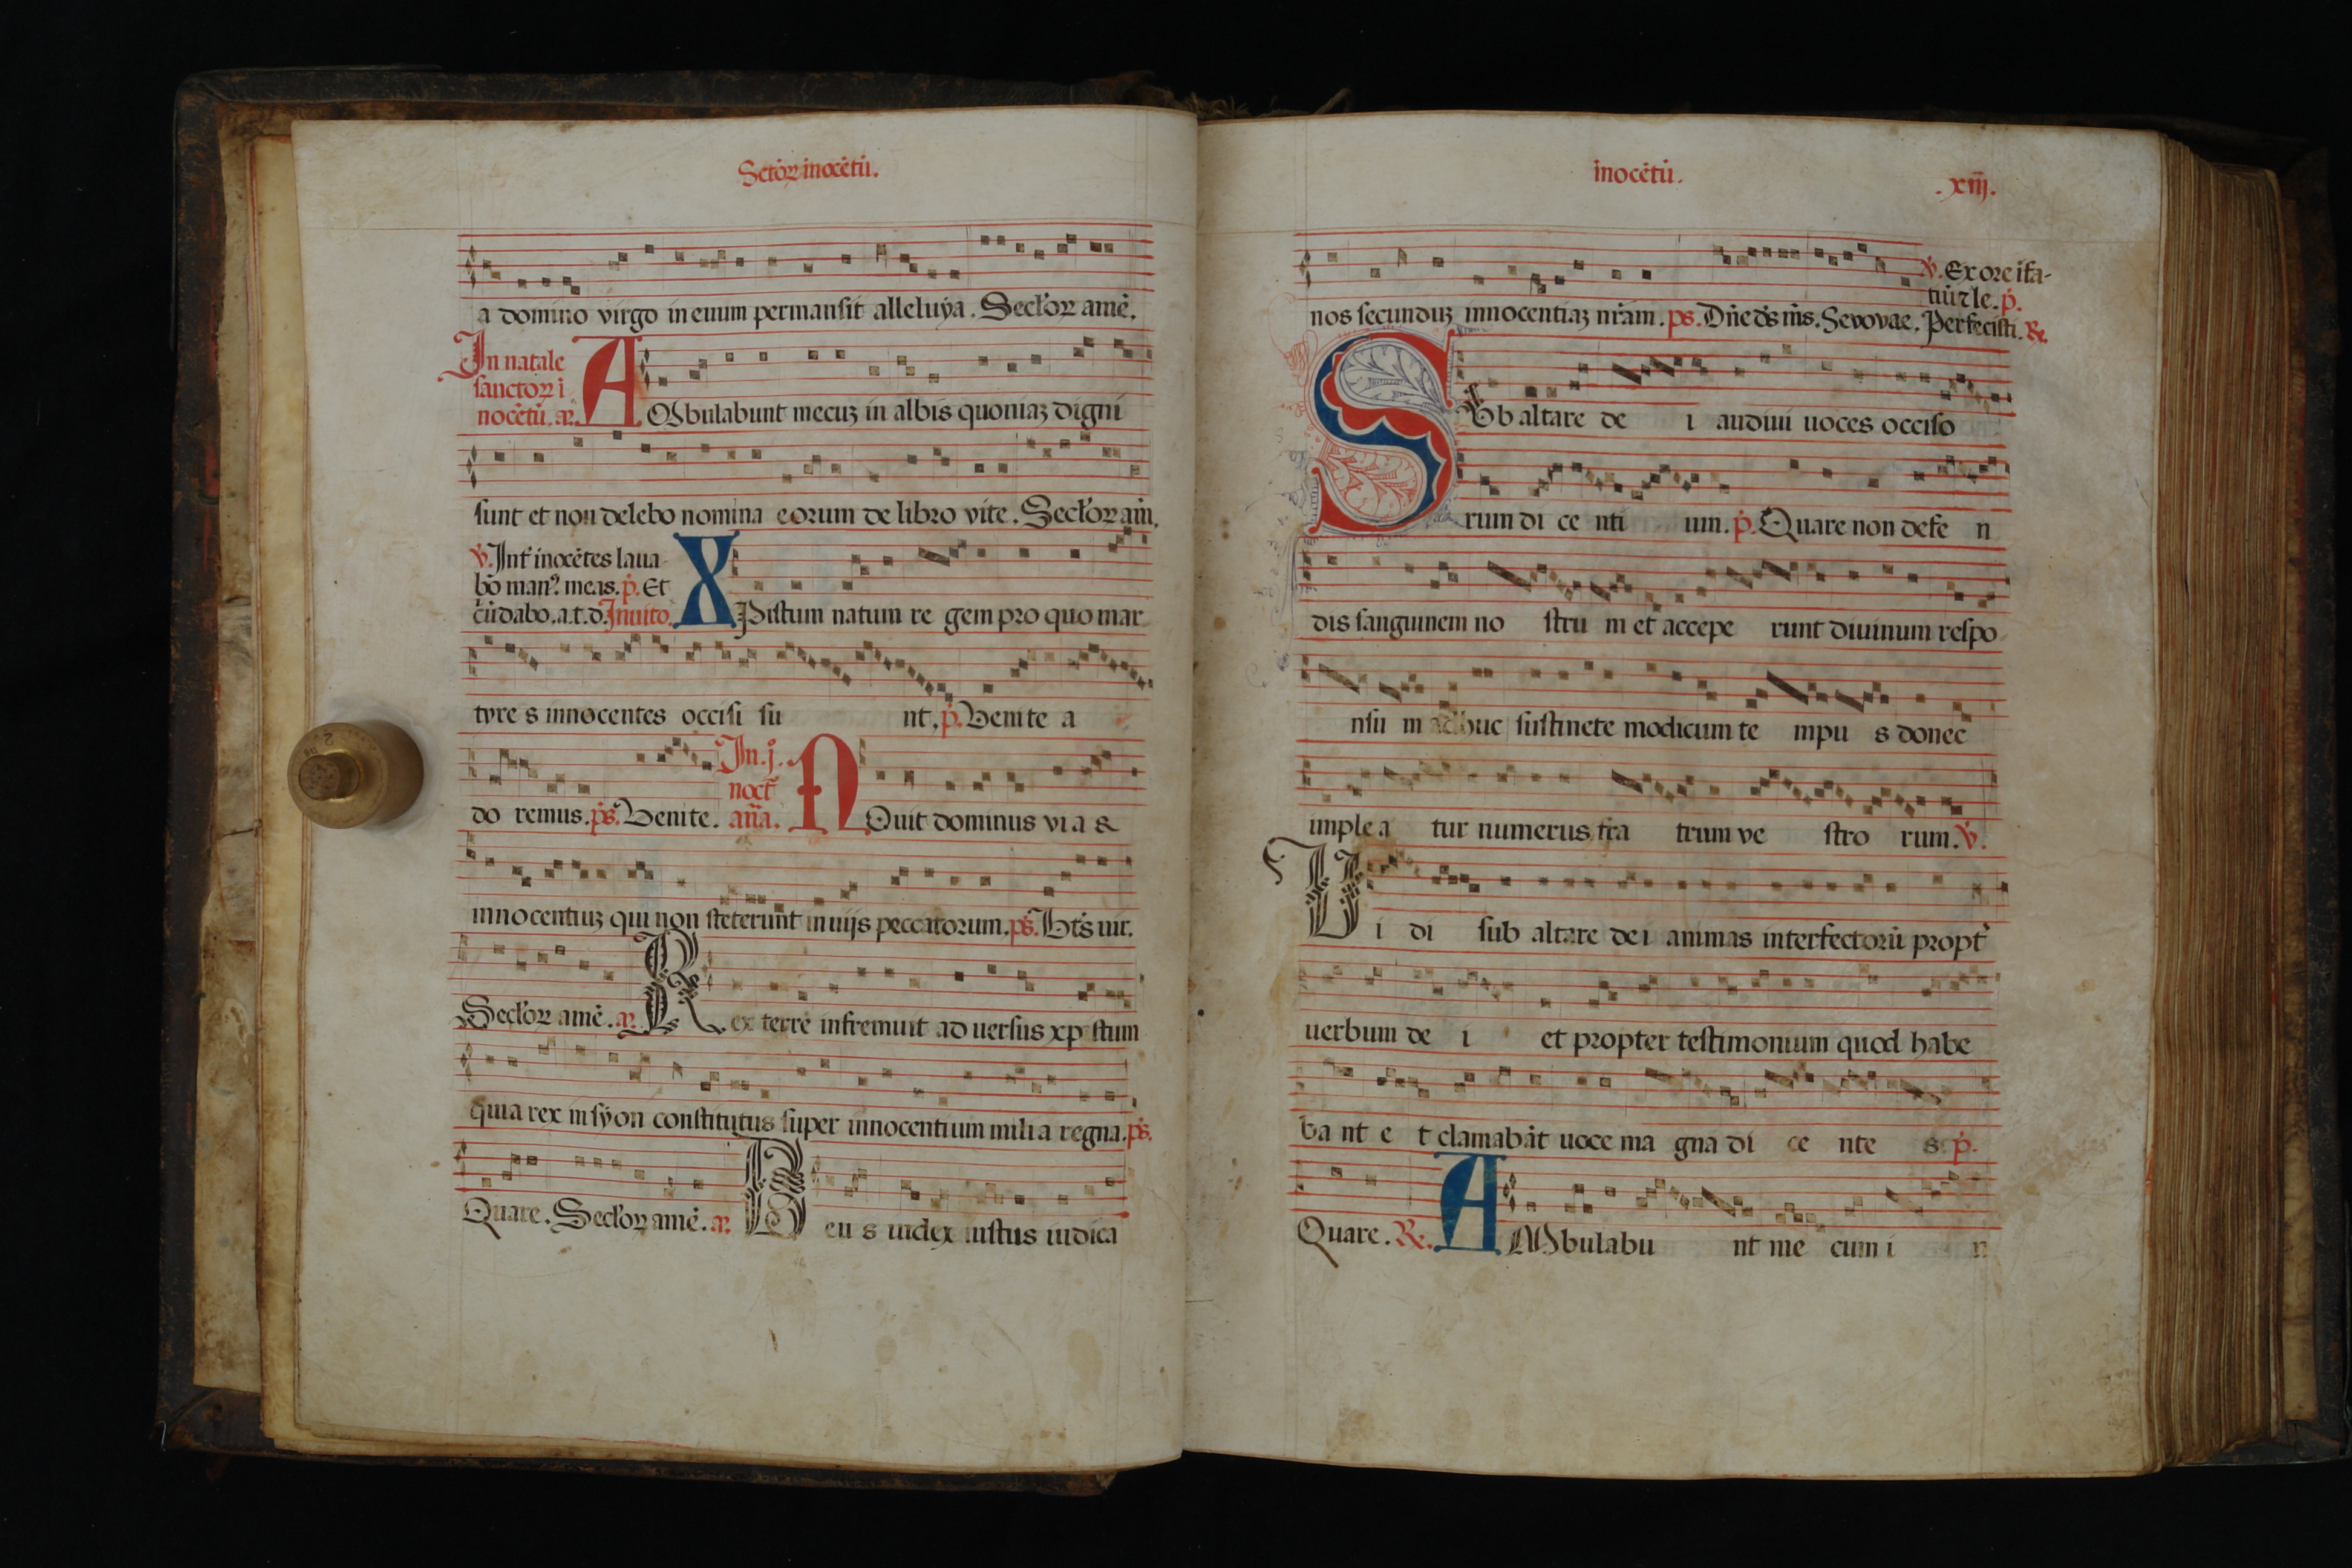 Sctõꝝ inocẽtũ.
a domino virgo in euum permansit alleluya. Secl'oꝝ amẽ.
In natale
sanctoꝝ i
nocẽtũ. añ.
AMbulabunt mecuʒ in albis quoniaʒ digni
sunt et non delebo nomina eorum de libro vite. Secl'oꝝ am̃.
ꝟ. Int' inocẽtes laua
bo manꝰ meas. p̃. Et
c̃ũdabo. a.t.d. Inuito.
XPistum natum re gem pro quo mar
tyre s innocentes occisi su nt. p̃. Venite a
do remus. ps̃. Venite.
In. j.
noct̃
aña.
NOuit dominus vi a &
innocentiuʒ qui non steterunt in uijs peccatorum. ps̃. Bt̃s uir.
Secl'oꝝ amẽ. añ. Rex terre infremuit ad uersus xp̃ stum
quia rex in syon constitutus super innocentium mili a regna. ps̃.
Quare. Secl'oꝝ amẽ. añ. Deu s iudex iustus iudica
inocẽtũ.
.xiij.
ꝟ. Ex ore ifa-
tiũ ⁊ le. p̃.
nos secunduʒ innocentiaʒ nr̃am. ps. Dñe ds̃ ms̃. Sevovae. Perfecisti. ℞.
SVb altare de i audiui uoces occiso
rum di ce nti um. p̃. Quare non defe n
dis sanguinem no stru m et accepe runt diuinum respo
nsu m adhuc sustinete modicum te mpu s donec
imple a tur numerus fra trum ve stro rum. ꝟ.
Vi di sub altare de i animas interfectorũ propt̃
uerbum de i et propter testimonium quod habe
ba nt e t clamabãt uoce ma gna di ce nte s p̃.
Quare. ℞. AMbulabu nt me cum i n